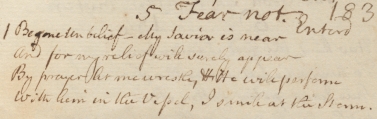 5 Fear not. Enterd 183
1 Begone Unbelief - My Savior is near
And for my relief will surely appear
By prayer let me wrestle, & He will perform
With him in the Vessel, I smile at the Storm.